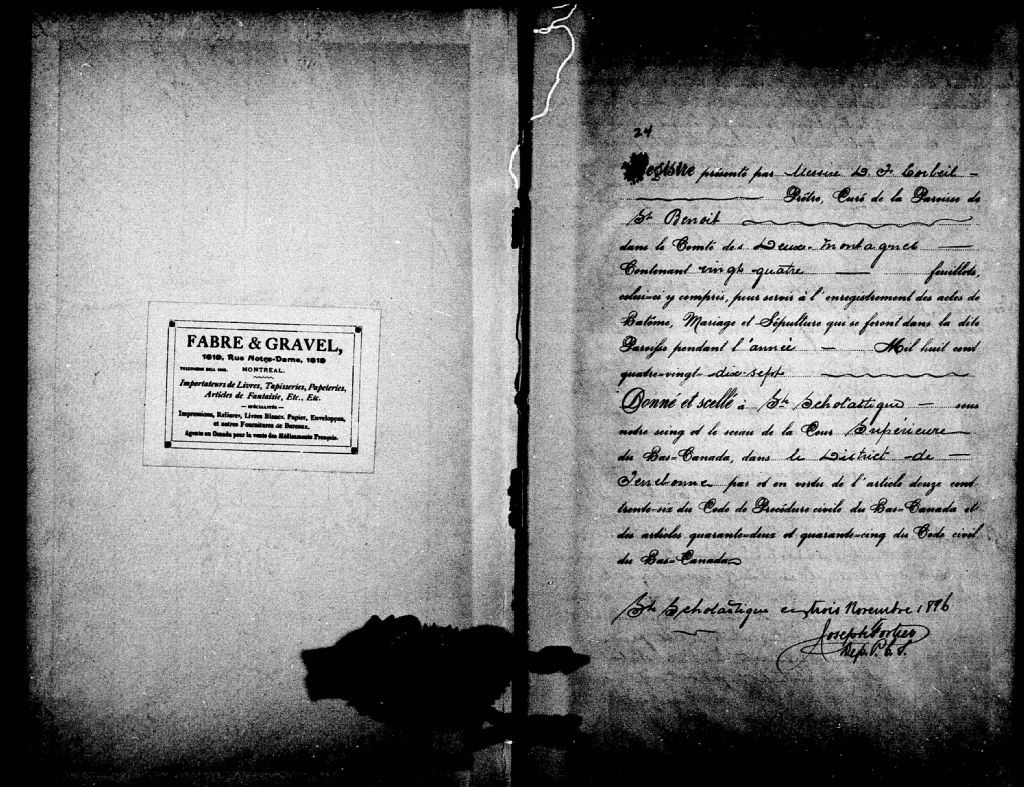 FABRE & GRAVEL,
1619, Rue Notre-Dame, 1619
MONTREAL.
Importateurs de Livres, Tapisseries, Papeteries,
Articles de Fantaisie, Etc., Etc.
— SPÉCIALITÉS —
Impressions, Reliures, Livres Blancs, Papier, Enveloppes,
et autres Fournitures de Bureaux.
Agents au Canada pour la vente des Médicaments Français.
24
Registre présenté par Messire D. F. Corbeil –
Prêtre, Curé de la Paroisse de
St Benoit
dans le Comté des Deux-Montagnes —
Contenant vingt quatre — feuillets,
celui-ci y compris, pour servir à l'enregistrement des actes de
Batême, Mariage et Sépulture qui se feront dans la dite
Paroisse pendant l'année — Mil huit cent
quatre-vingt dix-sept
Donné et scellé à Ste Scholastique — sous
notre seing et le sceau de la Cour Supérieure
du Bas-Canada, dans le District de —
Terrebonne par et en vertu de l'article douze cent
trente-six du Code de Procédure civile du Bas-Canada et
des articles quarante-deux et quarante-cinq du Code civil
du Bas-Canada
Ste Scholastique ce trois Novembre 1896
Joseph Fortier
Dep. P. C. S.